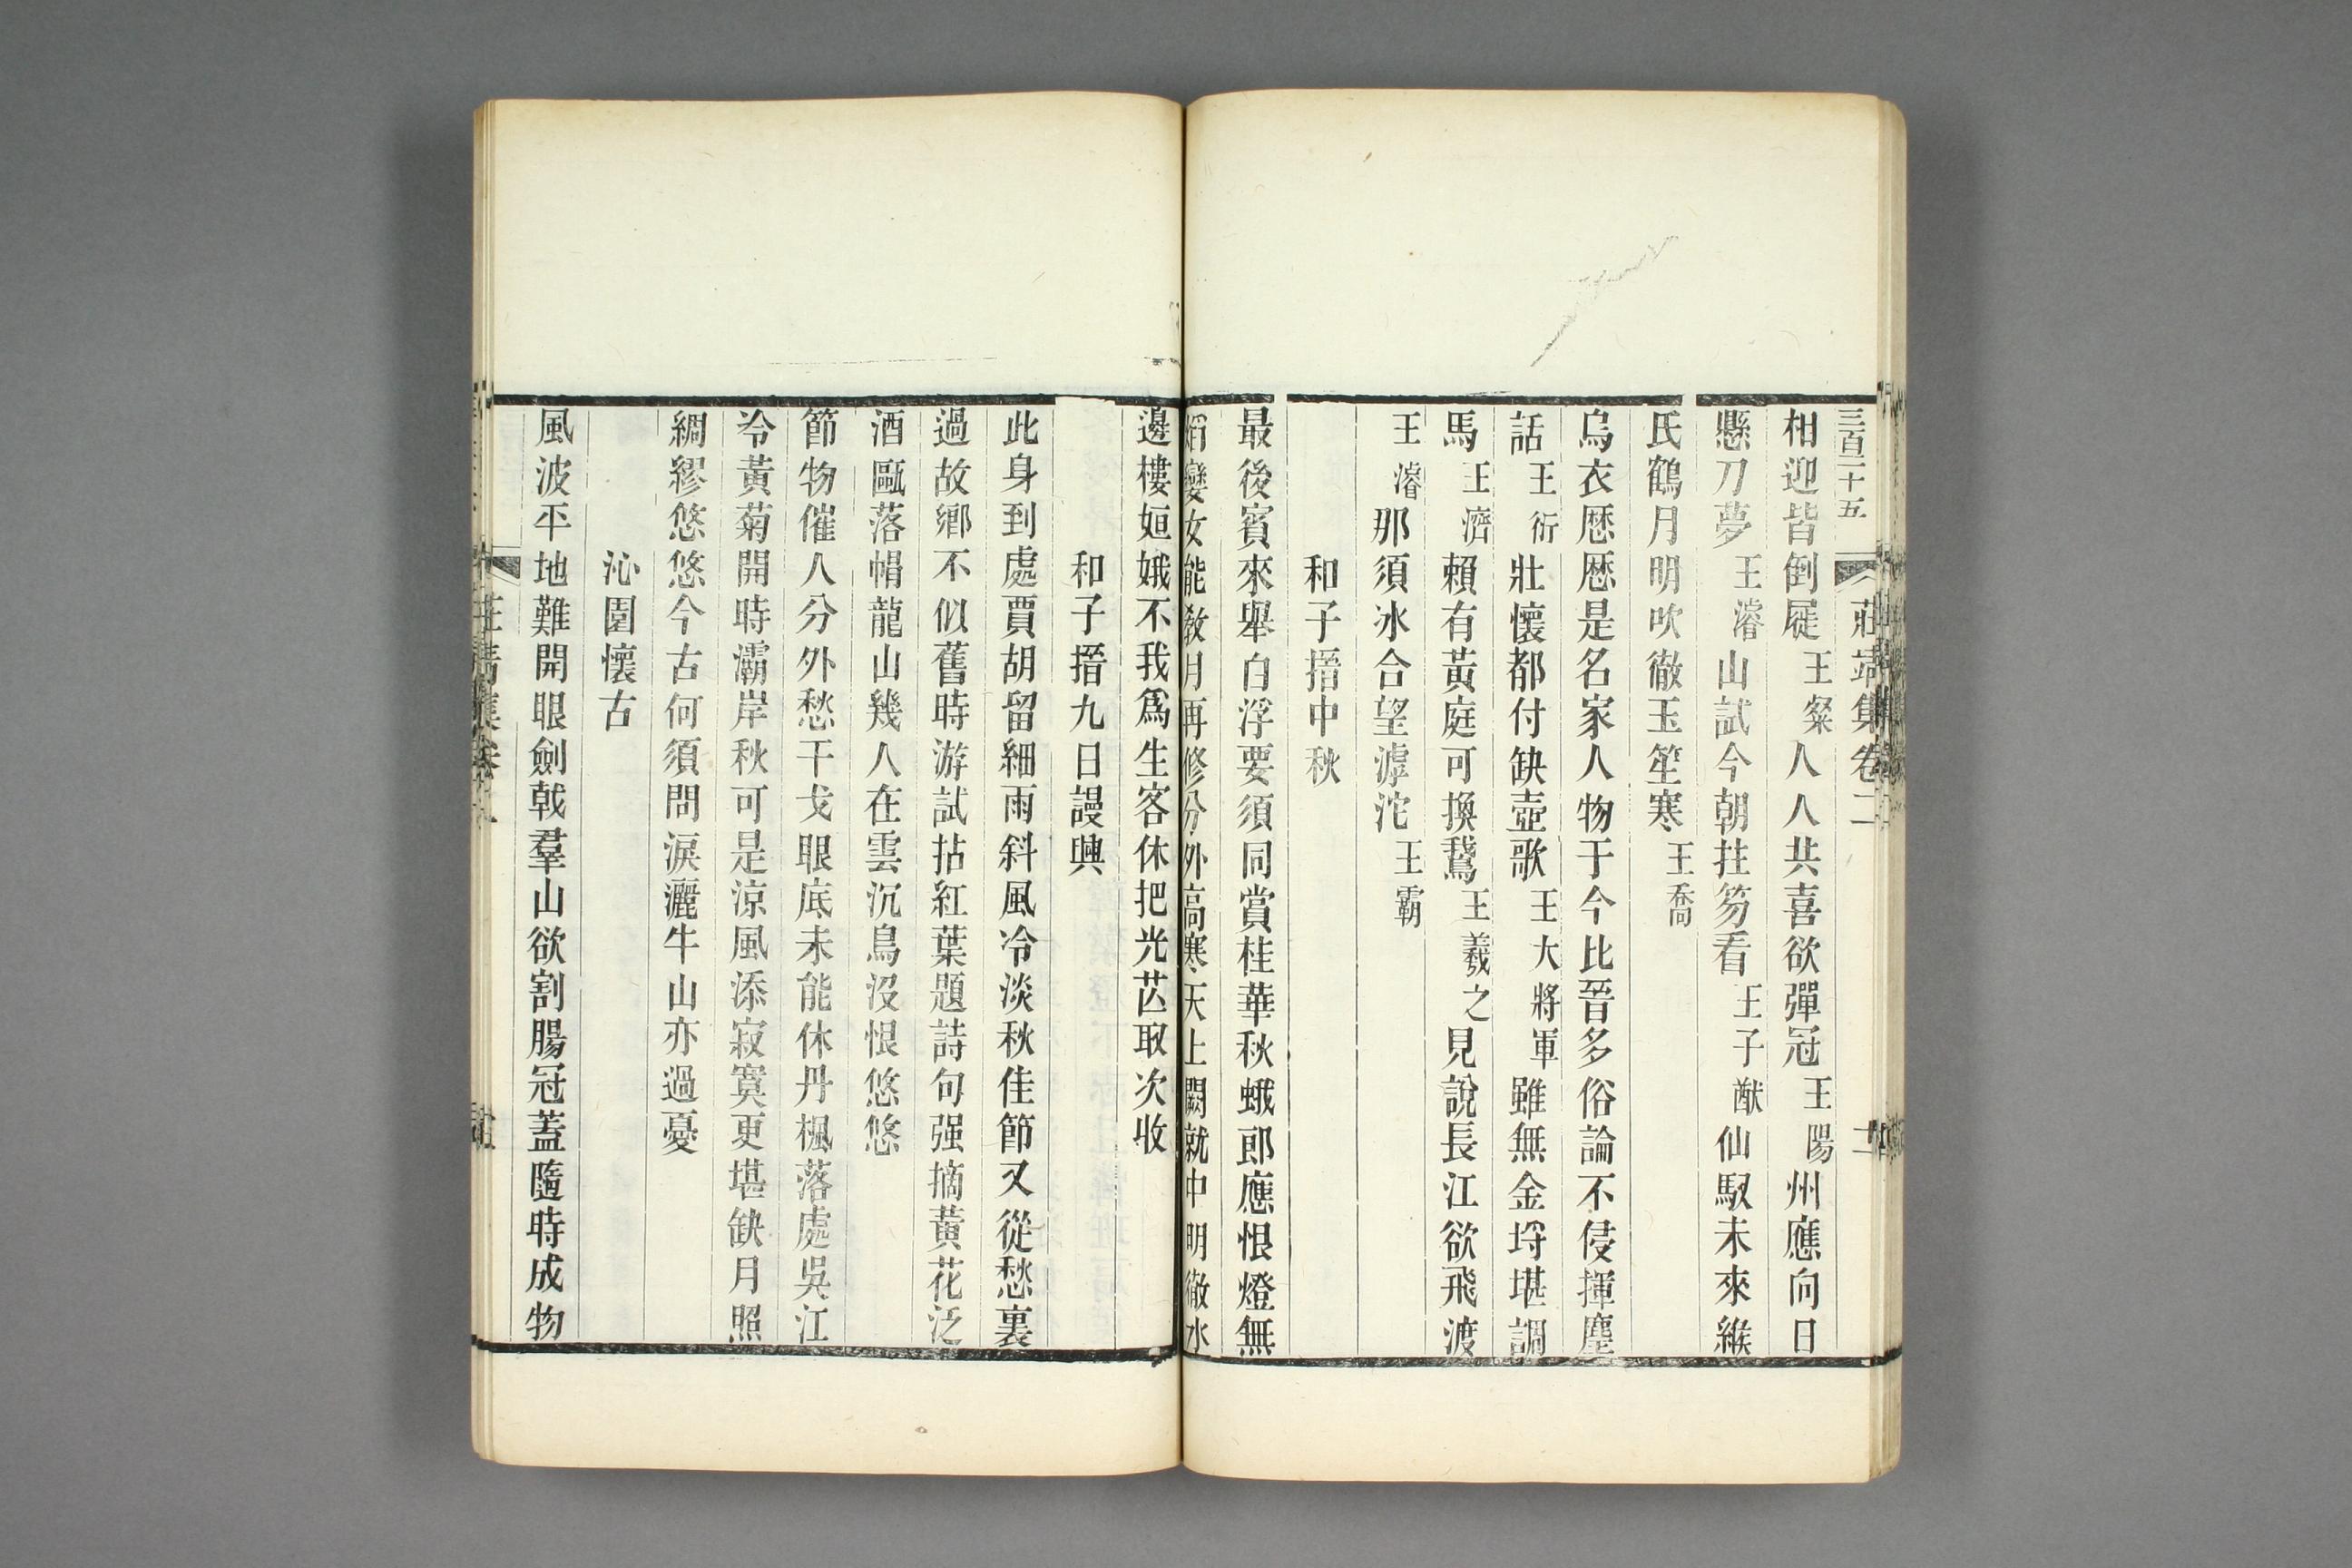 三百二十五 莊靖集卷二 二
相迎皆倒屣王粲人人共喜欲彈冠王陽州應向日
懸刀夢王濬山試今朝拄笏看王子猷仙馭未來緱
氏鶴月明吹徹玉笙寒王喬
烏衣歷歷是名家人物于今比晉多俗論不侵揮麈
話王衍壯懷都付缺壺歌王大將軍雖無金埒堪調
馬王濟賴有黃庭可換鵞王羲之見說長江欲飛渡
王濬那須冰合望滹沱王霸
和子搢中秋
最後賓來舉白浮要須同賞桂華秋蛾郎應恨燈無
焰孌女能敎月再修分外高寒天上闕就中明徹水
邊樓姮娥不我爲生客休把光芒取次收
和子搢九日謾興
此身到處賈胡留細雨斜風冷淡秋佳節又從愁裏
過故鄉不似舊時游試拈紅葉題詩句强摘黃花泛
酒甌落帽龍山幾人在雲沉鳥沒恨悠悠
節物催人分外愁干戈眼底未能休丹楓落處吳江
冷黃菊開時灞岸秋可是涼風添寂寞更堪缺月照
綢繆悠悠今古何須問淚灑牛山亦過憂
沁園懷古
風波平地難開眼劍戟羣山欲割腸冠蓋隨時成物